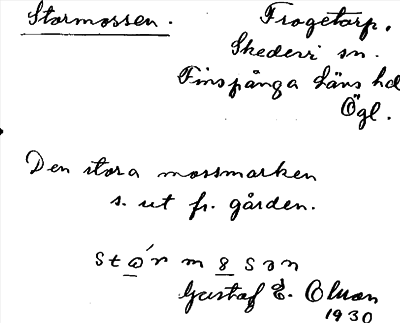 Stormossen. Frogetorp,
Skedevi sn.
Finspånga läns hd
Ögl.
Den stora mossmarken
s. ut fr. gården.
Gustaf E. Olson
1930